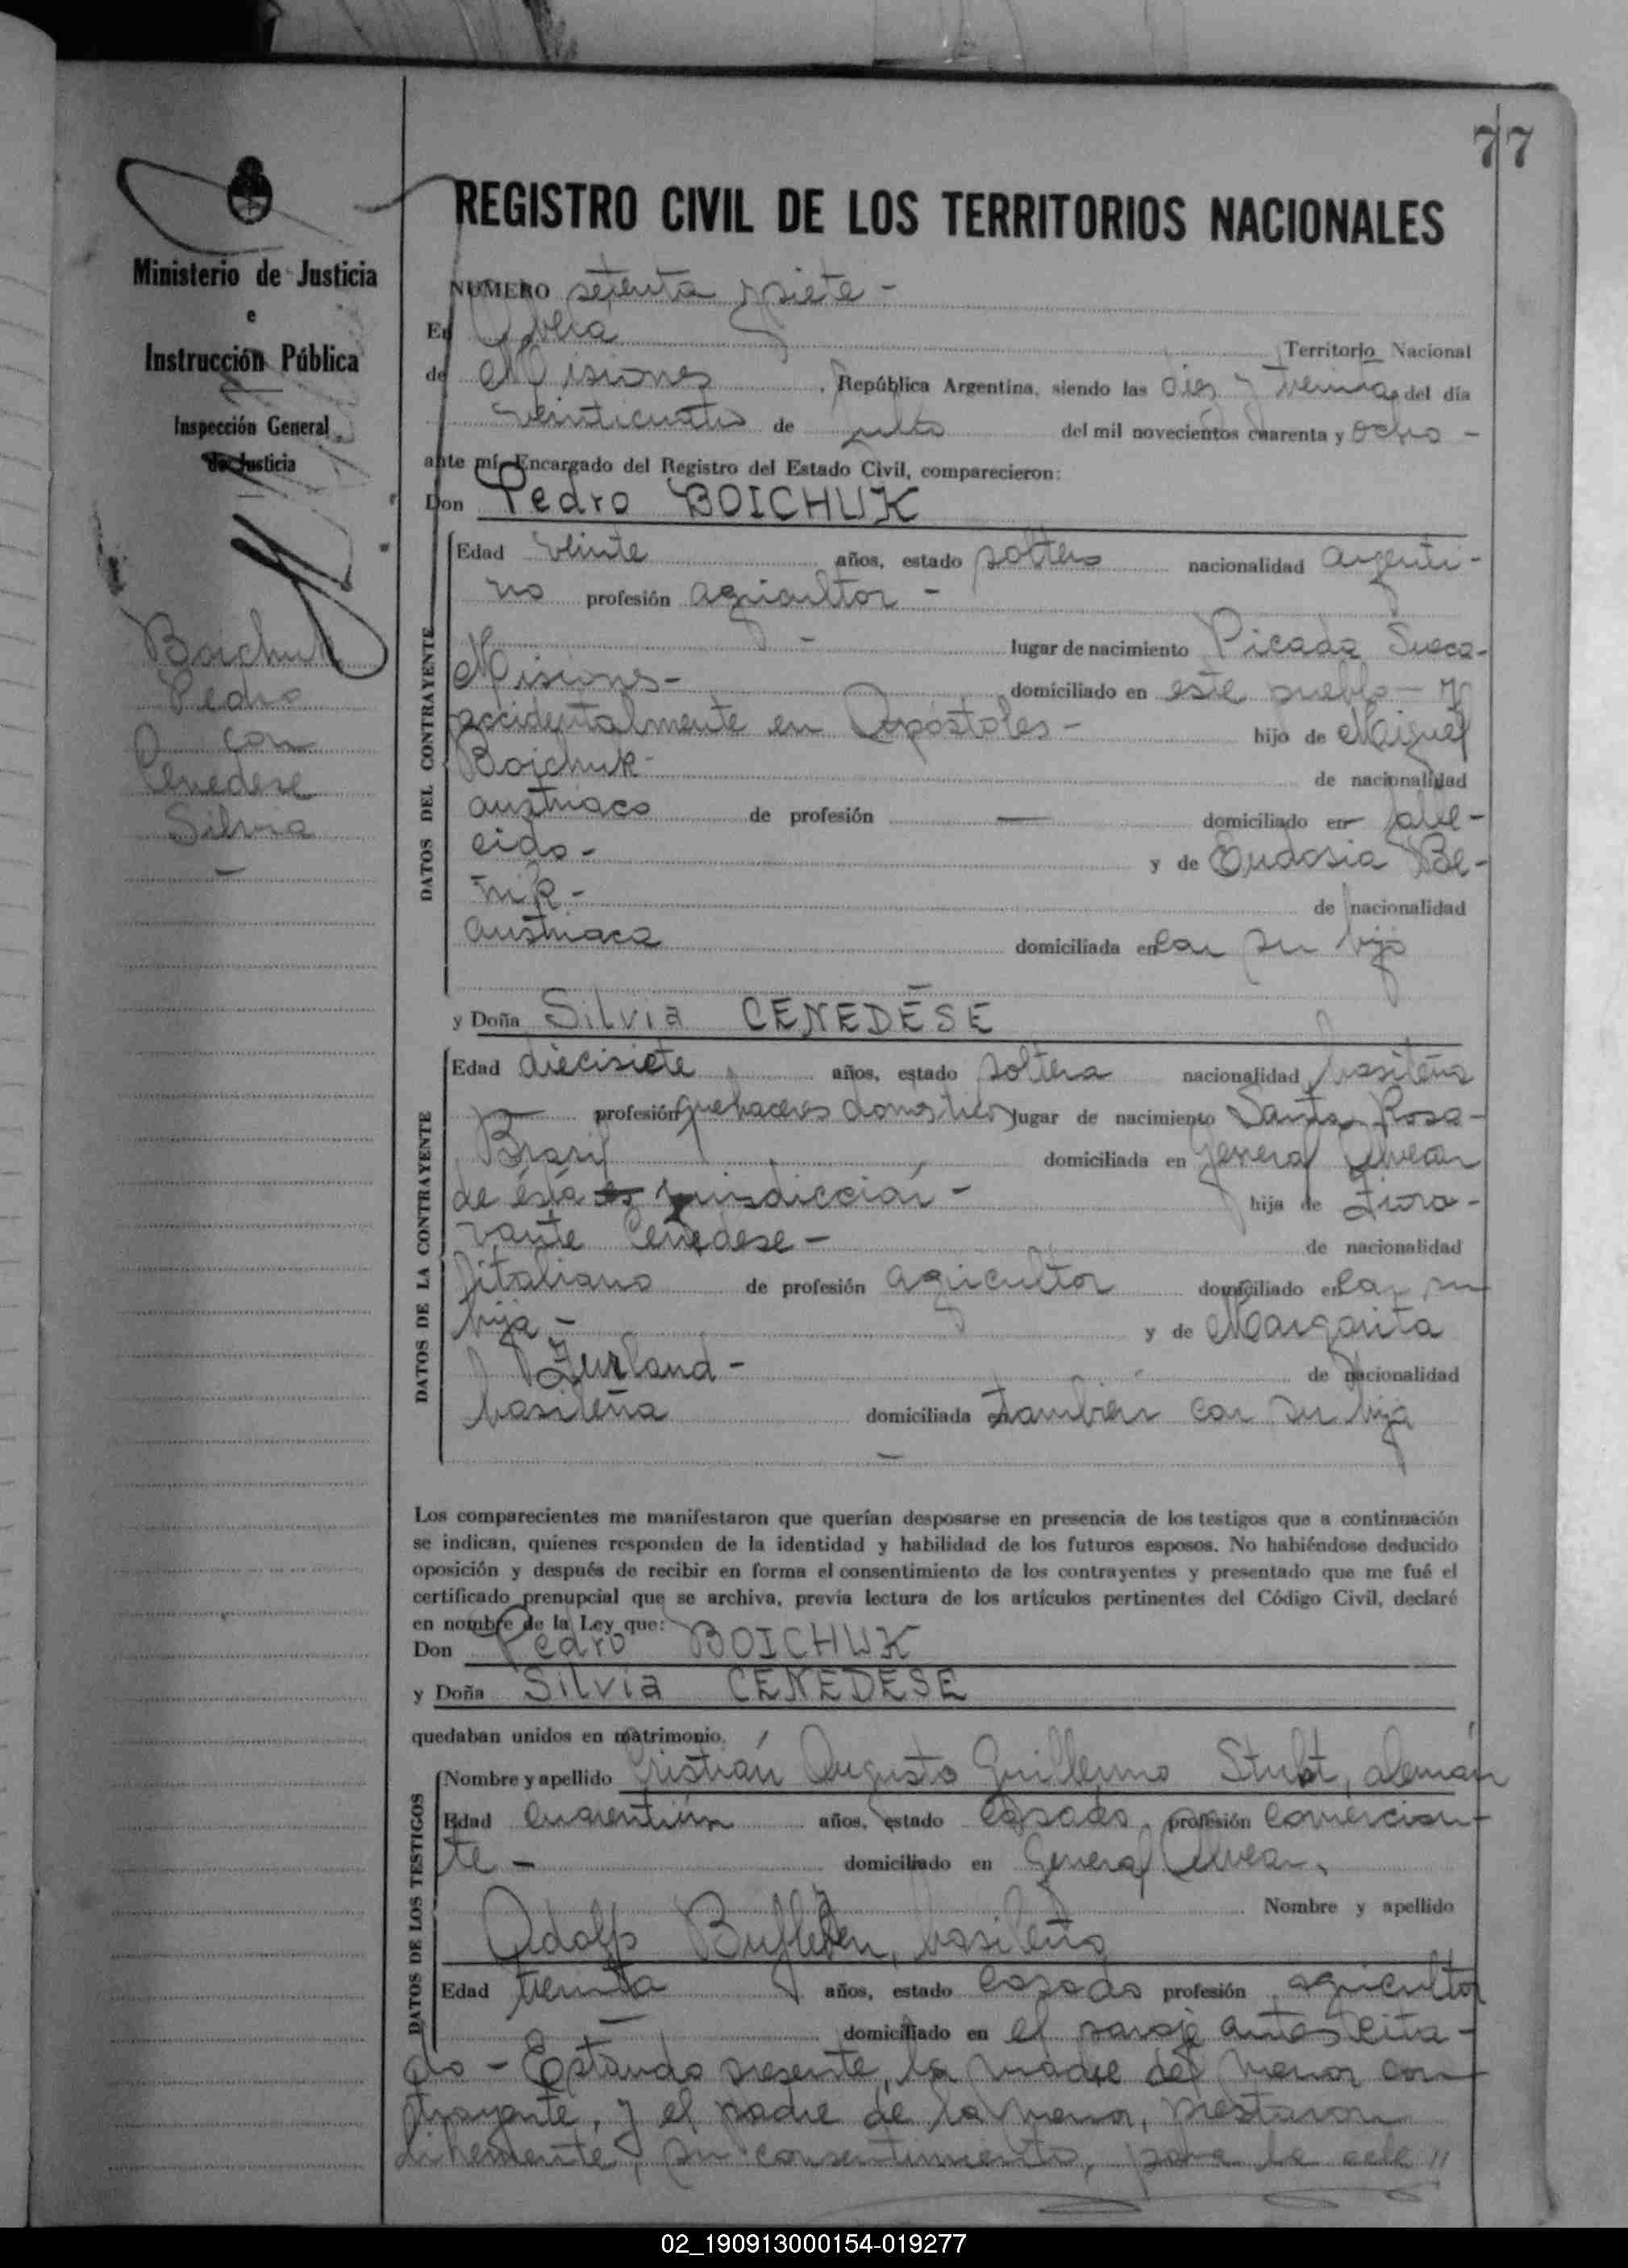 77
Ministerio de Justicia
e
Instrucción Pública
Inspección General
de Justicia
Boichuk
Pedro
con
Cenedese
Silvia
REGISTRO CIVIL DE LOS TERRITORIOS NACIONALES
NUMERO setenta y siete -
En Oberá Territorio Nacional
de Misiones, República Argentina, siendo las diez y treinta del día
veinticuatro de julio del mil novecientos cuarenta y ocho -
ante mí, Encargado del Registro del Estado Civil, comparecieron:
Don Pedro BOICHUK
DATOS DEL CONTRAYENTE
Edad veinte años, estado soltero nacionalidad argenti-
no profesión agricultor -
- lugar de nacimiento Picada Sueca-
Misiones- domiciliado en este pueblo - y
accidentalmente en Apóstoles - hijo de Miguel
Boichuk- de nacionalidad
austriaco de profesión — domiciliado en falle-
cido - y de Eudosia Be-
nik - de nacionalidad
austriaca domiciliada en con su hijo
-
y Doña Silvia CENEDESE
DATOS DE LA CONTRAYENTE
Edad diecisiete años, estado soltera nacionalidad brasileña
— profesión quehaceres domésticos lugar de nacimiento Santa Rosa-
Brasil domiciliada en General Alvear
de ésta jurisdicción - hija de Fiora-
vante Cenedese - de nacionalidad
italiano de profesión agricultor domiciliado en con su
hija - y de Margarita
Zurland - de nacionalidad
brasileña domiciliada en también con su hija
-
Los comparecientes me manifestaron que querían desposarse en presencia de los testigos que a continuación
se indican, quienes responden de la identidad y habilidad de los futuros esposos. No habiéndose deducido
oposición y después de recibir en forma el consentimiento de los contrayentes y presentado que me fué el
certificado prenupcial que se archiva, previa lectura de los artículos pertinentes del Código Civil, declaré
en nombre de la Ley que:
Don Pedro BOICHUK
y Doña Silvia CENEDESE
quedaban unidos en matrimonio.
DATOS DE LOS TESTIGOS
Nombre y apellido Cristián Augusto Guillermo alemán
Edad cuarentiún años, estado casado, profesión comercian-
te - domiciliado en General Alvear,
Nombre y apellido
Adolfo brasileño
Edad treinta años, estado casado profesión agricultor
— domiciliado en el paraje antes cita-
do - Estando presente, la madre del menor con
trayente, y el padre de la menor, prestaron
su consentimiento, para la cele "
02_190913000154-019277